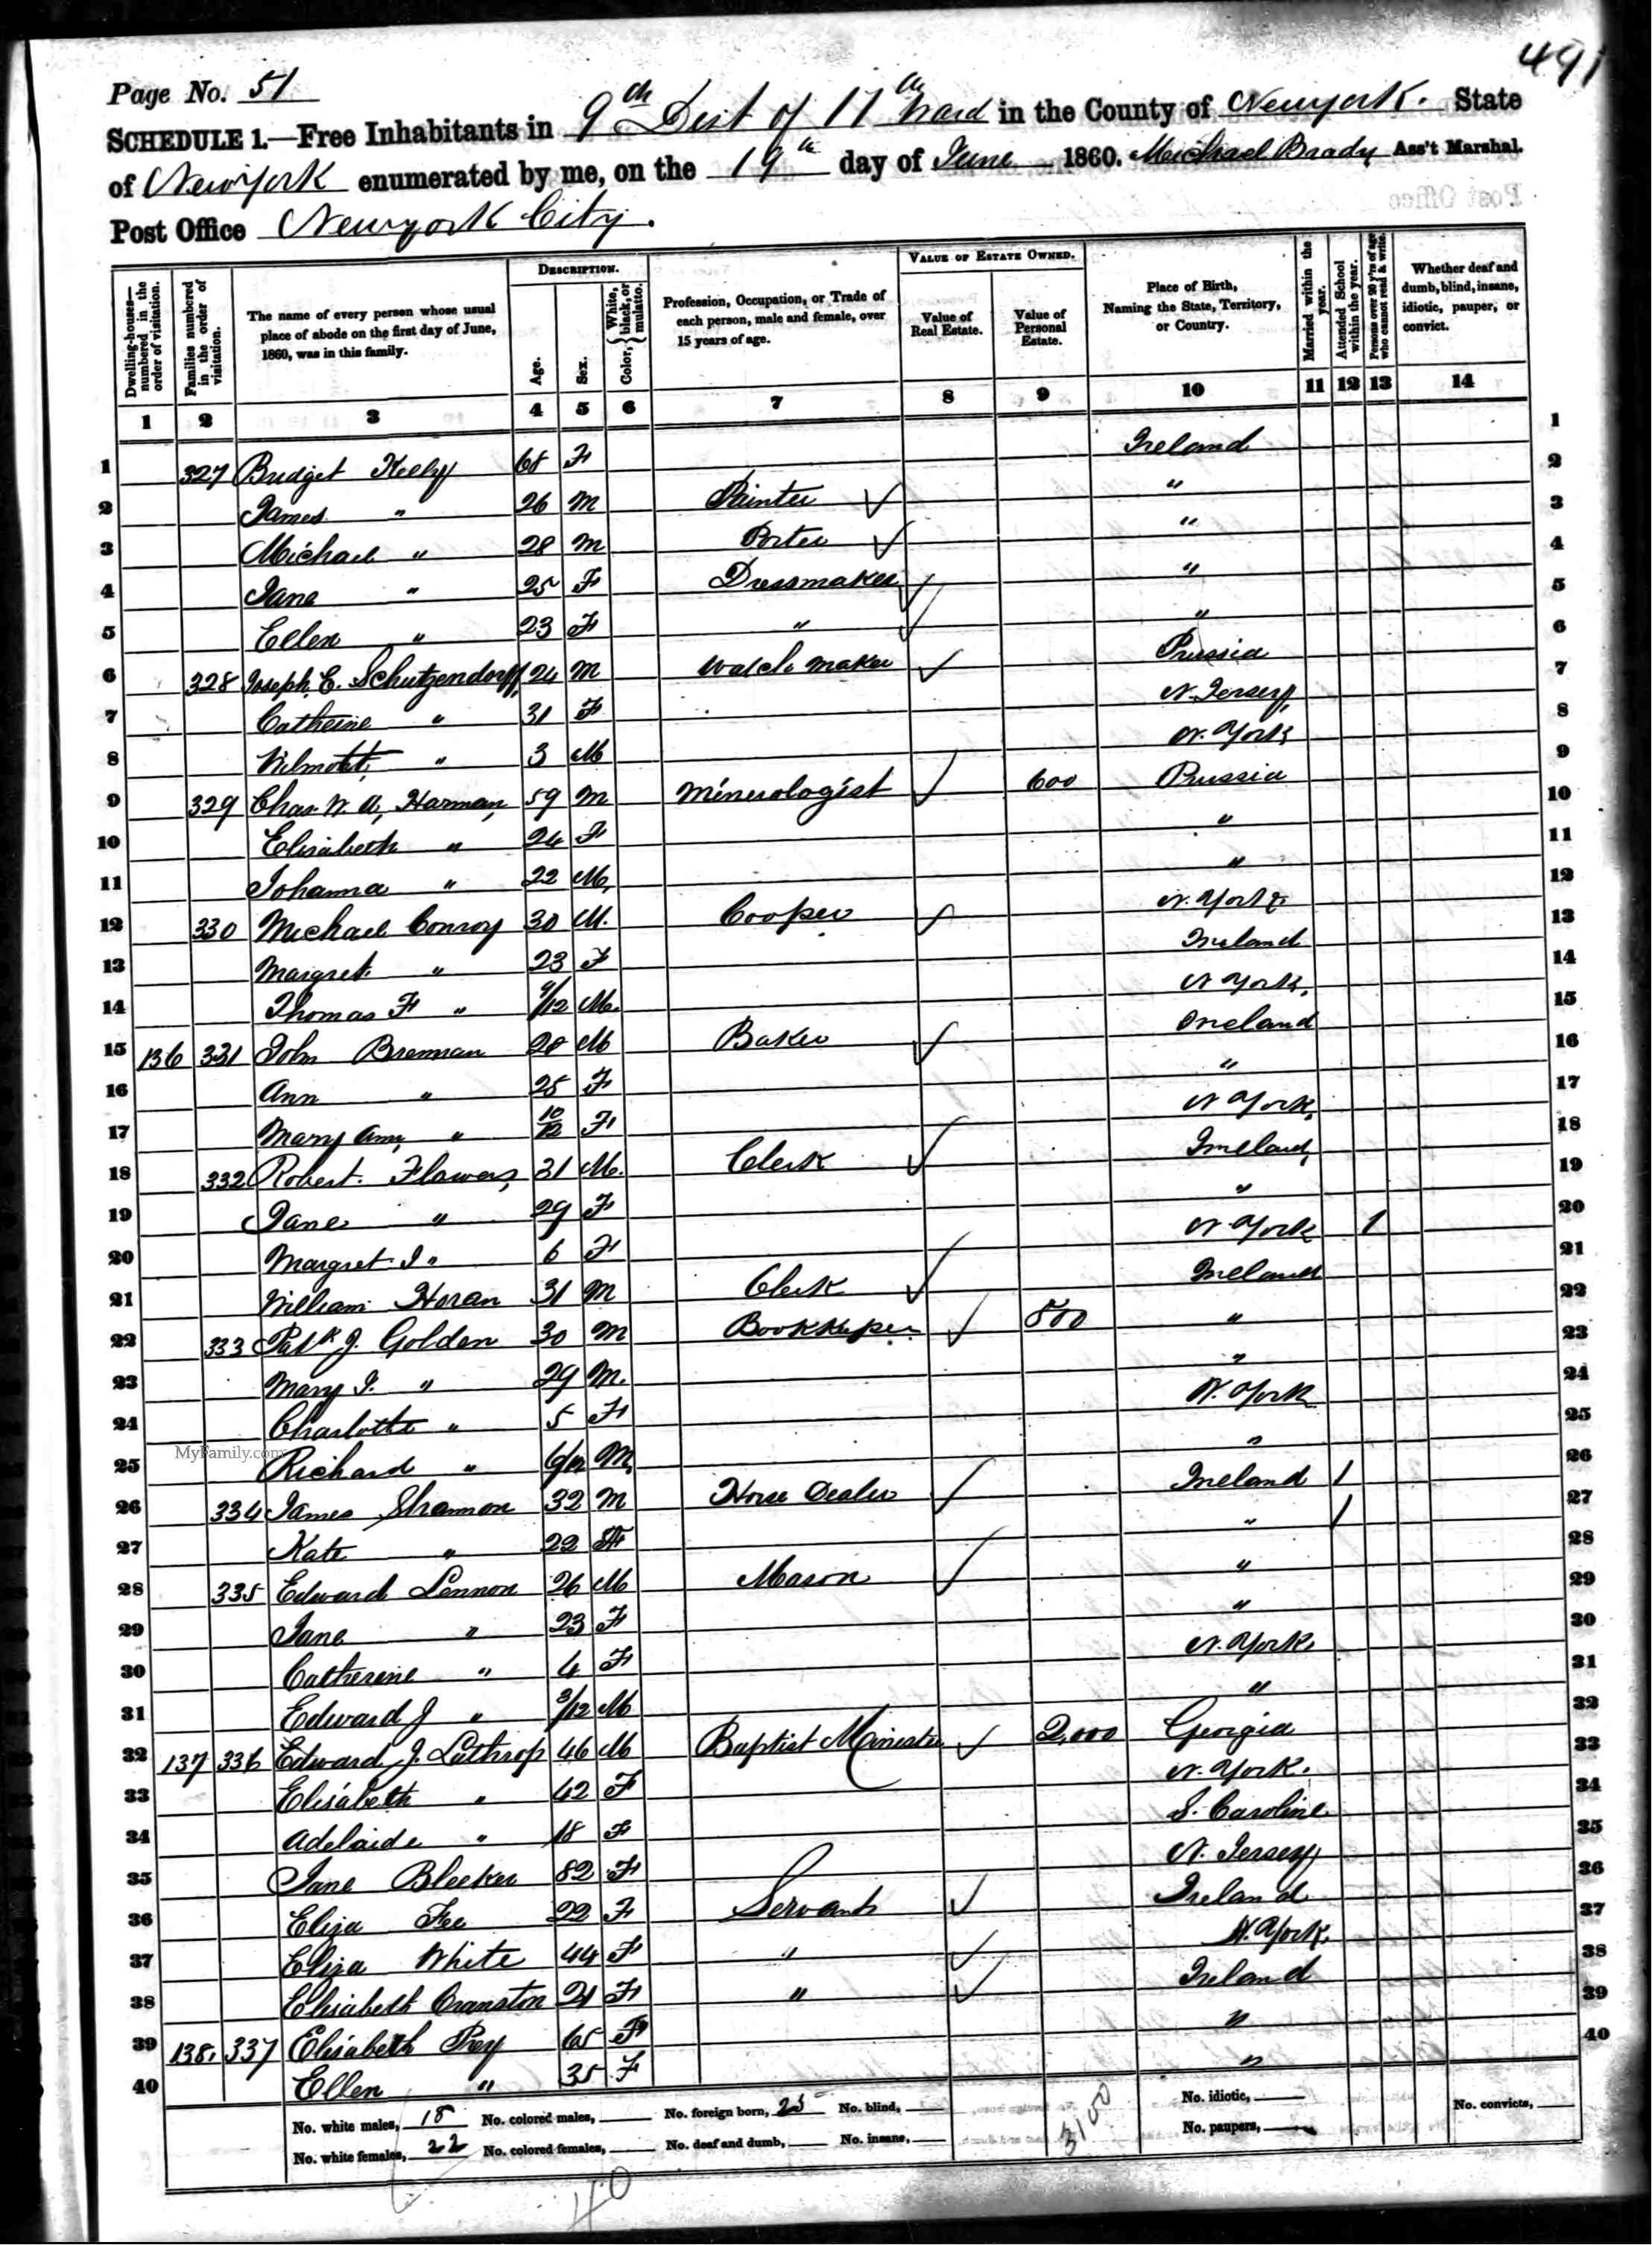 491
Page No. 51
SCHEDULE 1.—Free Inhabitants in 9th Dist of 17th Ward in the County of Newyork. State
of Newyork enumerated by me, on the 19th day of June 1860. Michael Brady Ass't Marshal.
Post Office Newyork City.
Dwelling-houses—numbered in the order of visitation.
Families numbered in the order of visitation.
The name of every person whose usual place of abode on the first day of June, 1860, was in this family.
Description.
Age.
Sex.
Color, White, black, or mulatto.
Profession, Occupation, or Trade of each person, male and female, over 15 years of age.
Value of Estate Owned.
Value of Real Estate.
Value of Personal Estate.
Place of Birth, Naming the State, Territory, or Country.
Married within the year.
Attended School within the year.
Persons over 20 y'rs of age who cannot read & write.
Whether deaf and dumb, blind, insane, idiotic, pauper, or convict.
1 2 3 4 5 6 7 8 9 10 11 12 13 14
1 327 Bridget Kelly 68 F Ireland 1
2 James " 26 M Printer " 2
3 Michael " 28 M Porter " 3
4 Jane " 25 F Dressmaker " 4
5 Ellen " 23 F " " 5
6 328 Joseph E. Schutzendorff 24 M Watch maker Prussia 6
7 Catherine " 31 F N. Jersey 7
8 " 3 M N. York 8
9 329 Chas. W. A. Harman 59 M Minerologist 600 Prussia 9
10 Elisabeth " 24 F " 10
11 Johanna " 22 M " 11
12 330 Michael Conroy 30 M. Cooper N. York 12
13 Margret " 23 F Ireland 13
14 Thomas F " 9/12 M. N York, 14
15 136 331 John Brennan 28 M Baker Ireland 15
16 Ann " 25 F " 16
17 Mary Ann " 10/12 F N York, 17
18 332 Robert Flowers 31 M. Clerk Ireland 18
19 Jane " 29 F " 19
20 Margret J. " 6 F N York 1 20
21 William Horan 31 M Clerk Ireland 21
22 333 Patk J. Golden 30 M Bookkeeper 500 " 22
23 Mary J. " 29 M. " 23
24 Charlotte " 5 F N. York 24
25 Richard " 6/12 M " 25
26 334 James Shannon 32 M Horse Dealer Ireland 1 26
27 Kate " 22 F " 1 27
28 335 Edward Lennon 26 M Mason " 28
29 Jane " 23 F " 29
30 Catherine " 4 F N. York 30
31 Edward J " 3/12 M " 31
32 137 336 Edward J. Lathrop 46 M Baptist Minister 2,000 Georgia 32
33 Elisabeth " 42 F N. York. 33
34 Adelaide " 18 F S. Caroline 34
35 Jane Bleeker 82 F N. Jersey 35
36 Eliza Fee 22 F Servant Ireland 36
37 Eliza White 44 F " N. York. 37
38 Elisabeth Cranston 21 F " Ireland 38
39 138. 337 Elisabeth 65 F " 39
40 Ellen " 35 F " 40
MyFamily.com
No. white males, 18 No. colored males, No. foreign born, 25 No. blind, No. idiotic, No. convicts,
No. white females, 22 No. colored females, No. deaf and dumb, No. insane, No. paupers,
3100
40